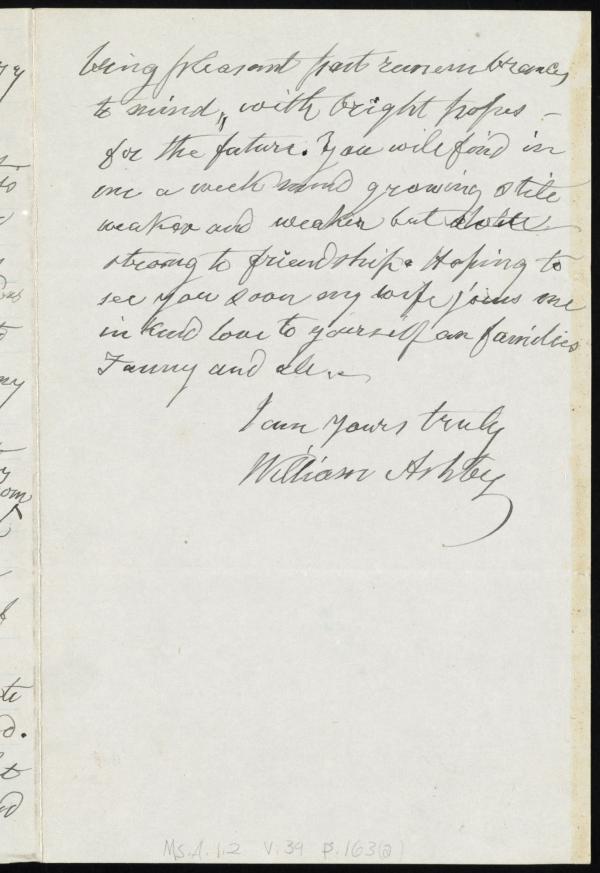 bring pleasant past remembrances
to mind, with bright hopes -
for the future. You will find in
me a week mind growing still
weaker and weaker but
strong to friendship. Hoping to
see you soon my wife joins me
in kind love to yourself an families
Fanny and all.
I am yours truly
William Ashby
Ms.A.1.2 V.39 p.163(a)